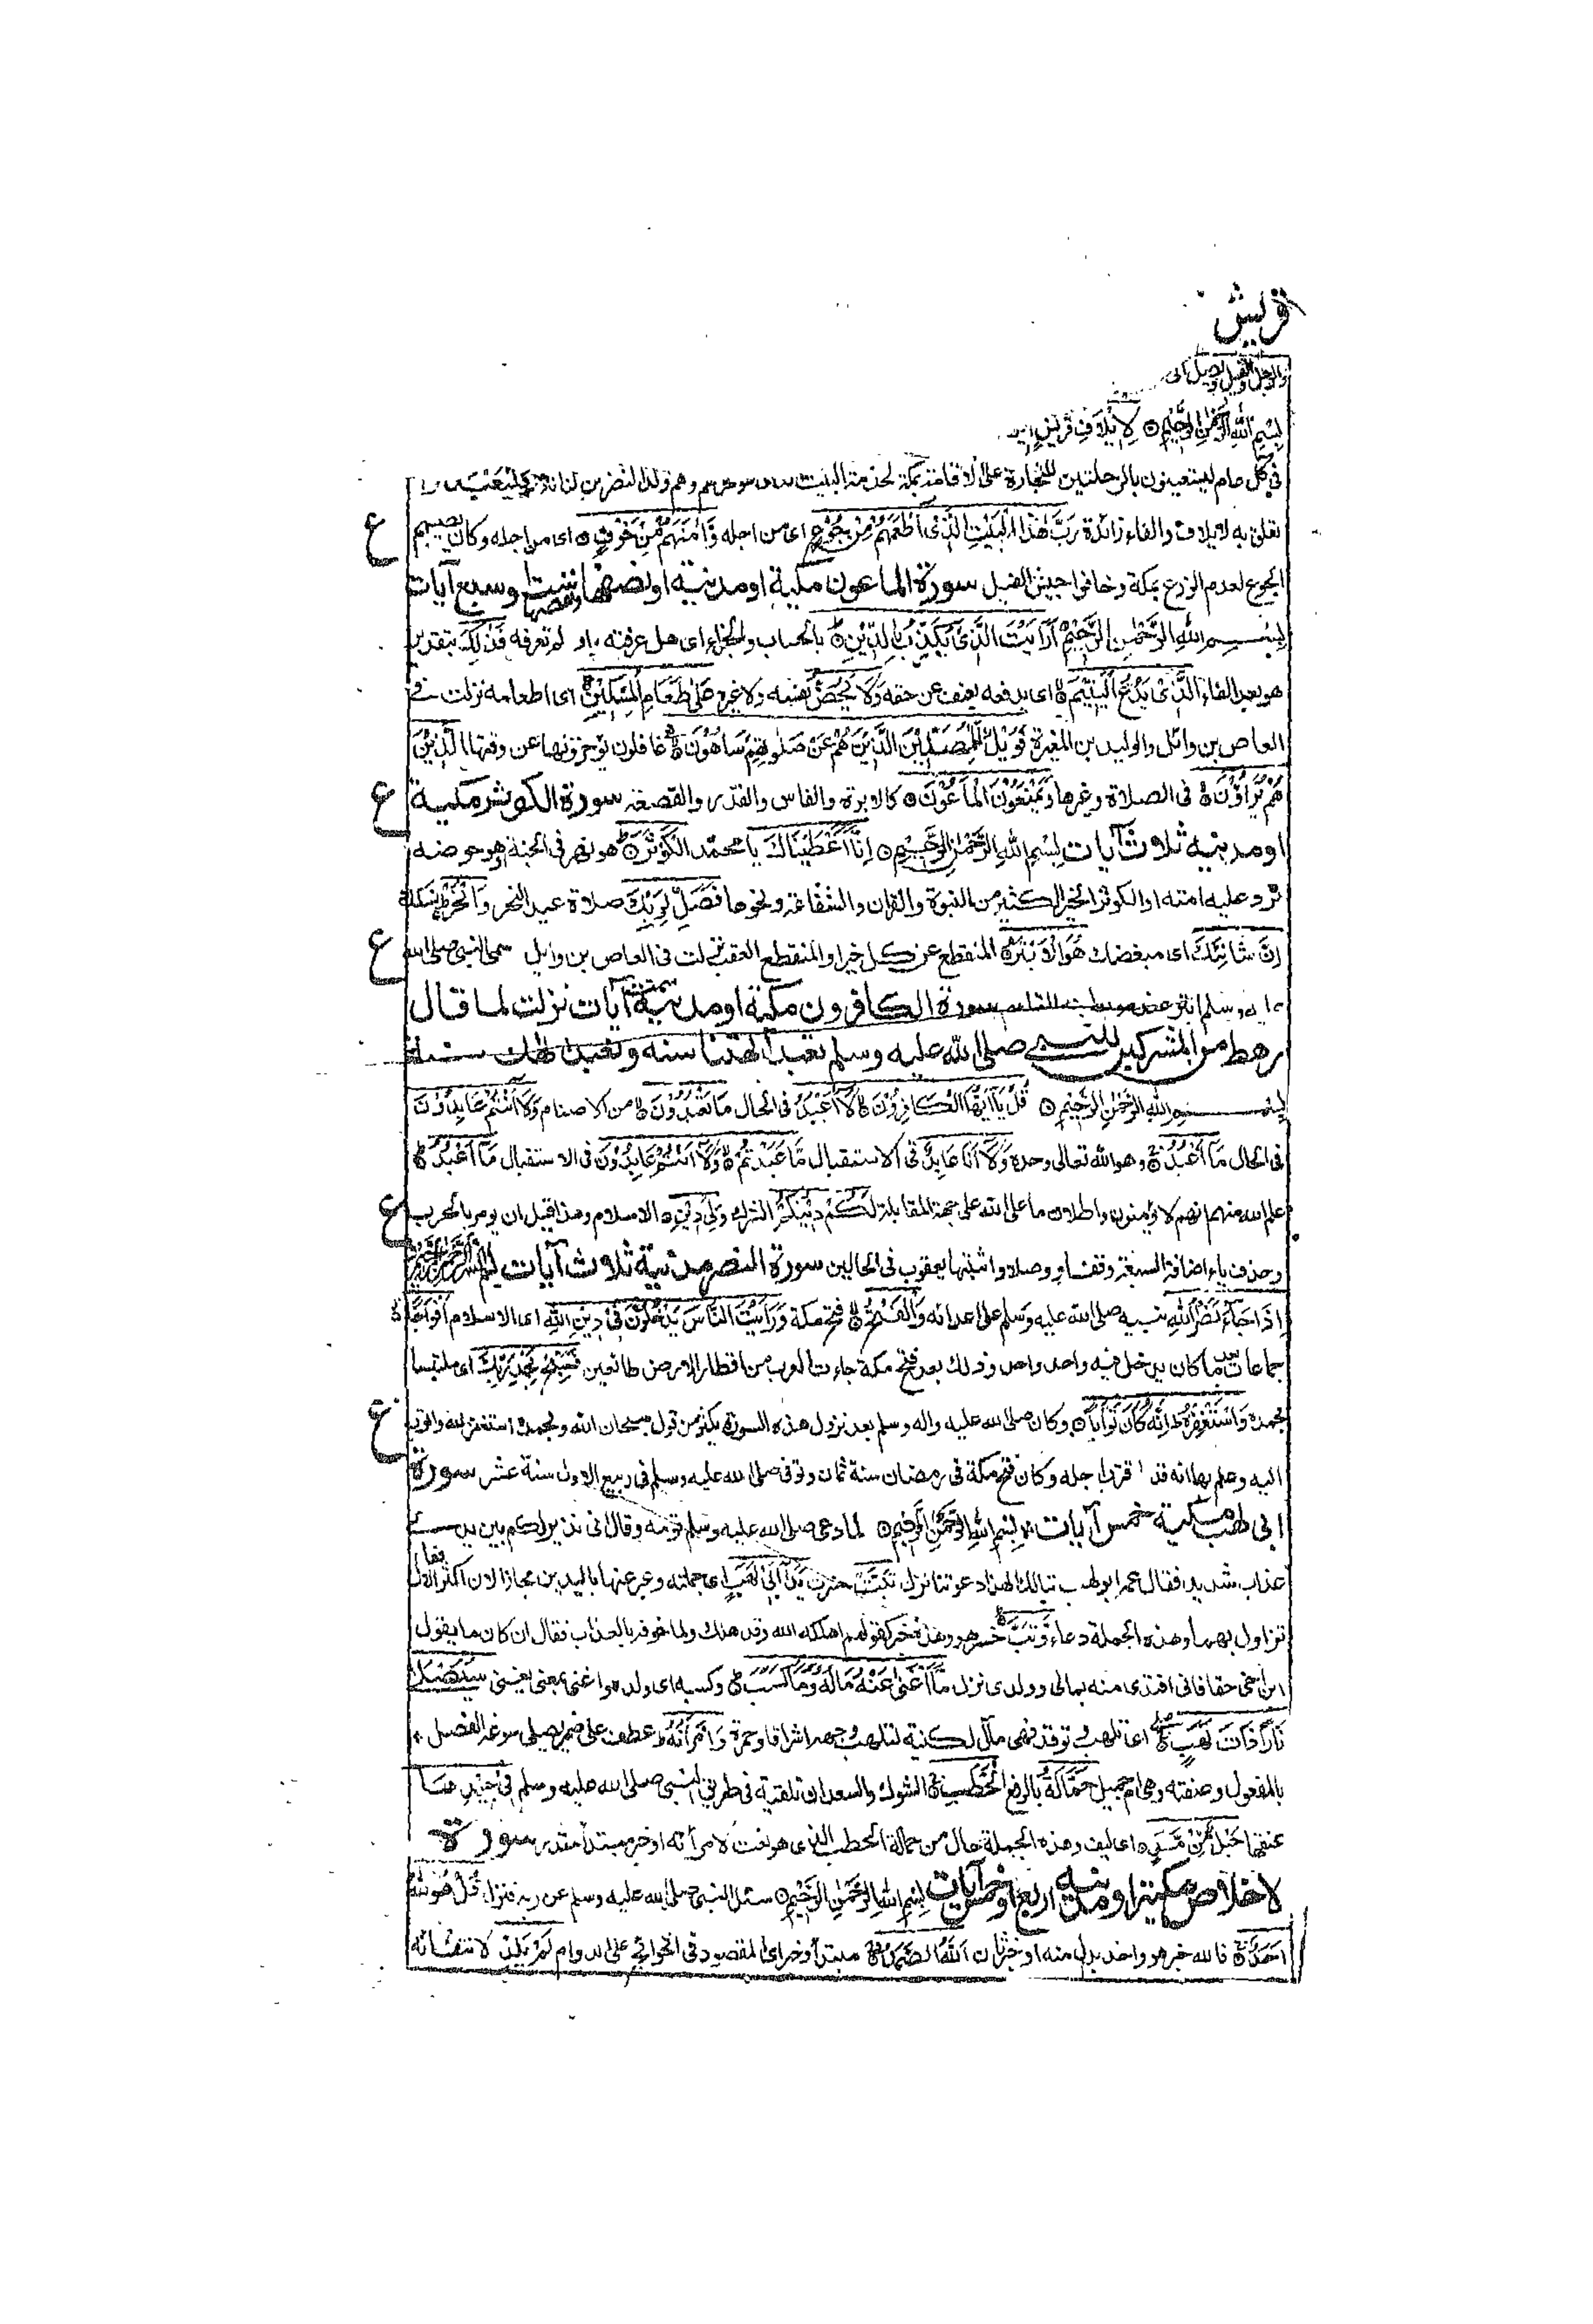 قريش
بِسْمِ اللهِ الرَّحْمٰنِ الرَّحِيْمِ لِاِيْلَافِ قُرَيْشٍ
فى كل عام ليستعينون بالرحلتين للتجارة على الاقامة بمكة لخدمة البيت وهم ولد النضر بن كنانة فَلْيَعْبُدُوْا
تعلق به لايلاف والفاء زائدة رَبَّ هٰذَا الْبَيْتِ الَّذِىْ اَطْعَمَهُمْ مِنْ جُوْعٍ اى من اجله وَّاٰمَنَهُمْ مِّنْ خَوْفٍ اى من اجله وكان يصيبهم
الجوع لعدم الزرع بمكة وخافوا جيش الفيل سورة الماعون مكية او مدنية او نصفها ونصفها ست وسبع آيات
بِسْمِ اللهِ الرَّحْمٰنِ الرَّحِيْمِ اَرَاَيْتَ الَّذِىْ يُكَذِّبُ بِالدِّيْنِ بالحساب والجزاء اى هل عرفته او لم تعرفه فَذٰلِكَ بتقدير
هو بعد الفاء الَّذِىْ يَدُعُّ الْيَتِيْمَ اى يدفعه بعنف عن حقه وَلَا يَحُضُّ نفسه ولا غيره عَلٰى طَعَامِ الْمِسْكِيْنِ اى اطعامه نزلت فى
العاص بن وائل والوليد بن المغيرة فَوَيْلٌ لِّلْمُصَلِّيْنَ الَّذِيْنَ هُمْ عَنْ صَلٰوتِهِمْ سَاهُوْنَ غافلون يؤخرونها عن وقتها الَّذِيْنَ
هُمْ يُرَاؤُوْنَ فى الصلاة وغيرها وَيَمْنَعُوْنَ الْمَاعُوْنَ كالابرة والفاس والقدر والقصعة سورة الكوثر مكية
او مدنية ثلاث آيات بِسْمِ اللهِ الرَّحْمٰنِ الرَّحِيْمِ اِنَّا اَعْطَيْنَاكَ يا محمد الْكَوْثَرَ هو نهر فى الجنة وهو حوضه
ترد عليه امته او الكوثر الخير الكثير من النبوة والقران والشفاعة ونحوها فَصَلِّ لِرَبِّكَ صلاة عيد النحر وَانْحَرْ نسكك
اِنَّ شَانِئَكَ اى مبغضك هُوَ الْاَبْتَرُ المنقطع عن كل خير او المنقطع العقب نزلت فى العاص بن وائل سمى النبى صلى الله
عليه وسلم ابتر عند موت ابنه القاسم سورة الكافرون مكية او مدنية ست آيات نزلت لما قال
رهط من المشركين للنبى صلى الله عليه وسلم تعبد آلهتنا سنه ونعبد الهك سنة
بِسْمِ اللهِ الرَّحْمٰنِ الرَّحِيْمِ قُلْ يَا اَيُّهَا الْكَافِرُوْنَ لَا اَعْبُدُ فى الحال مَا تَعْبُدُوْنَ من الاصنام وَلَا اَنْتُمْ عَابِدُوْنَ
فى الحال مَا اَعْبُدُ وهو الله تعالى وحده وَلَا اَنَا عَابِدٌ فى الاستقبال مَّا عَبَدْتُّمْ وَلَا اَنْتُمْ عَابِدُوْنَ فى الاستقبال مَا اَعْبُدُ
علم الله منهم انهم لا يؤمنون واطلاق ما على الله على جهة المقابلة لَكُمْ دِيْنُكُمْ الشرك وَلِىَ دِيْنِ الاسلام وهذا قبل ان يومر بالحرب
وحذف ياء اضافة السبعة وقفا ووصلا واثبتها يعقوب فى الحالين سورة النصر مدنية ثلاث آيات بسم الله الرحمن الرحيم
اِذَا جَاءَ نَصْرُ اللهِ نبيه صلى الله عليه وسلم على اعدائه وَالْفَتْحُ فتح مكة وَرَاَيْتَ النَّاسَ يَدْخُلُوْنَ فِىْ دِيْنِ اللهِ اى الاسلام اَفْوَاجًا
جماعات بعد ما كان يدخل فيه واحد واحد وذلك بعد فتح مكة جاءت العرب من اقطار الارض طائعين فَسَبِّحْ بِحَمْدِ رَبِّكَ اى ملتبسا
بحمده وَاسْتَغْفِرْهُ اِنَّهُ كَانَ تَوَّابًا وكان صلى الله عليه واله وسلم بعد نزول هذه السورة يكثر من قول سبحان الله وبحمده استغفر الله واتوب
اليه وعلم بها انه قد اقترب اجله وكان فتح مكة فى رمضان سنة ثمان وتوفى صلى الله عليه وسلم فى ربيع الاول سنة عشر سورة
ابى لهب مكية خمس آيات بِسْمِ اللهِ الرَّحْمٰنِ الرَّحِيْمِ لما دعى صلى الله عليه وسلم قومه وقال انى نذير لكم بين يدى
عذاب شديد فقال عمه ابو لهب تبا لك الهذا دعوتنا نزل تَبَّتْ خسرت يَدَا اَبِىْ لَهَبٍ اى جملته وعبر عنها باليدين مجازا لان اكثر الافعال
تزاول بهما وهذه الجملة دعاء وَّتَبَّ خسر هو وهذه خبر كقولهم اهلكه الله وقد هلك ولما خوفه بالعذاب فقال ان كان ما يقول
ابن اخى حقا فانى افتدى منه بمالى وولدى نزل مَا اَغْنٰى عَنْهُ مَالُهُ وَمَا كَسَبَ وكسبه اى ولده واغنى بمعنى يغنى سَيَصْلٰى
نَارًا ذَاتَ لَهَبٍ اى تلهب وتوقد فهى مآل لكنيته لتلهب وجهه اشراقا وحمرة وَامْرَاَتُهُ عطف على ضمير يصلى سوغه الفصل
بالمفعول وصفته وهى ام جميل حَمَّالَةُ بالرفع الْحَطَبِ الشوك والسعدان تلقيه فى طريق النبى صلى الله عليه وسلم فِىْ جِيْدِهَا
عنقها حَبْلٌ مِّنْ مَّسَدٍ اى ليف وهذه الجملة حال من حمالة الحطب الذى هو نعت لامرأته او خبر مبتدأ مقدر سورة
لاخلاص مكية او مدنية اربع او خمس آيات بِسْمِ اللهِ الرَّحْمٰنِ الرَّحِيْمِ سئل النبى صلى الله عليه وسلم عن ربه فنزل قُلْ هُوَ اللهُ
اَحَدٌ فالله خبر هو واحد بدل منه او خبر ثان اَللهُ الصَّمَدُ مبتدأ وخبر اى المقصود فى الحوائج على الدوام لَمْ يَلِدْ لانتفائه